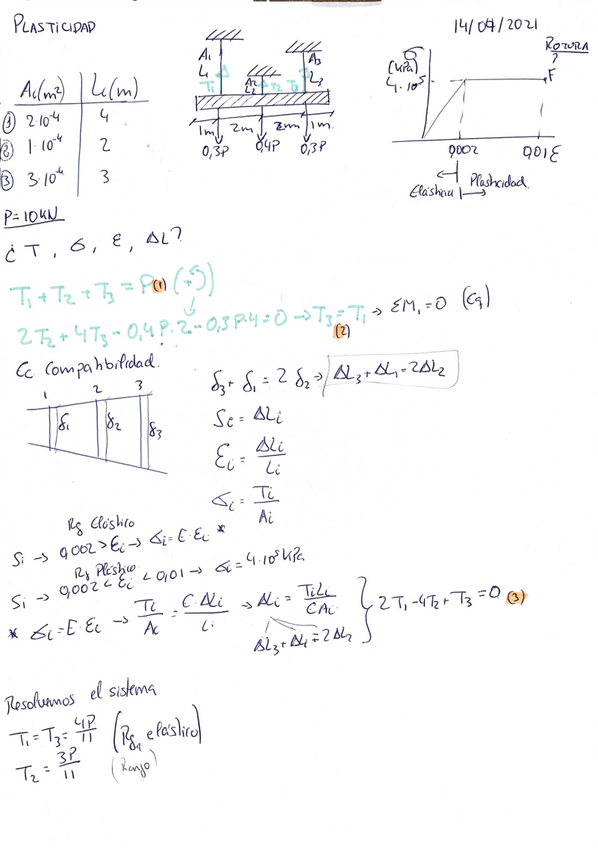 PLASTICIDAD
14/04/2021
Ai(m²) Li(m)
① 2·10⁻⁴ 4
② 1·10⁻⁴ 2
③ 3·10⁻⁴ 3
A₁
L₁
T₁
A₂
L₂
T₂
A₃
L₃
T₃
1m 2m 2m 1m
0,3P 0,4P 0,3P
σ
(kPa)
4·10⁵
ROTURA
?
F
0,002 0,01 ε
Elástica Plasticidad
P=10kN
¿ T, σ, ε, ΔL?
T₁ + T₂ + T₃ = P (1)
2T₂ + 4T₃ - 0,4P·2 - 0,3P·4 = 0 → T₃ = T₁ → ΣM₁ = 0
(2)
Ec Compatibilidad.
1 2 3
δ₁ δ₂ δ₃
δ₃ + δ₁ = 2 δ₂ → ΔL₃ + ΔL₁ = 2ΔL₂
δi = ΔLi
εi = ΔLi / Li
σi = Ti / Ai
Rg Elástico
Si → 0,002 > εi → σi = E·εi *
Rg Plástico
Si → 0,002 < εi < 0,01 → σi = 4·10⁵ kPa
* σi = E·εi → Ti / Ai = E·ΔLi / Li → ΔLi = TiLi / EAi } 2T₁ - 4T₂ + T₃ = 0 (3)
ΔL₃ + ΔL₁ = 2ΔL₂
Resolvemos el sistema
T₁ = T₃ = 4P / 11 (Rg elástico)
T₂ = 3P / 11 (Rango)